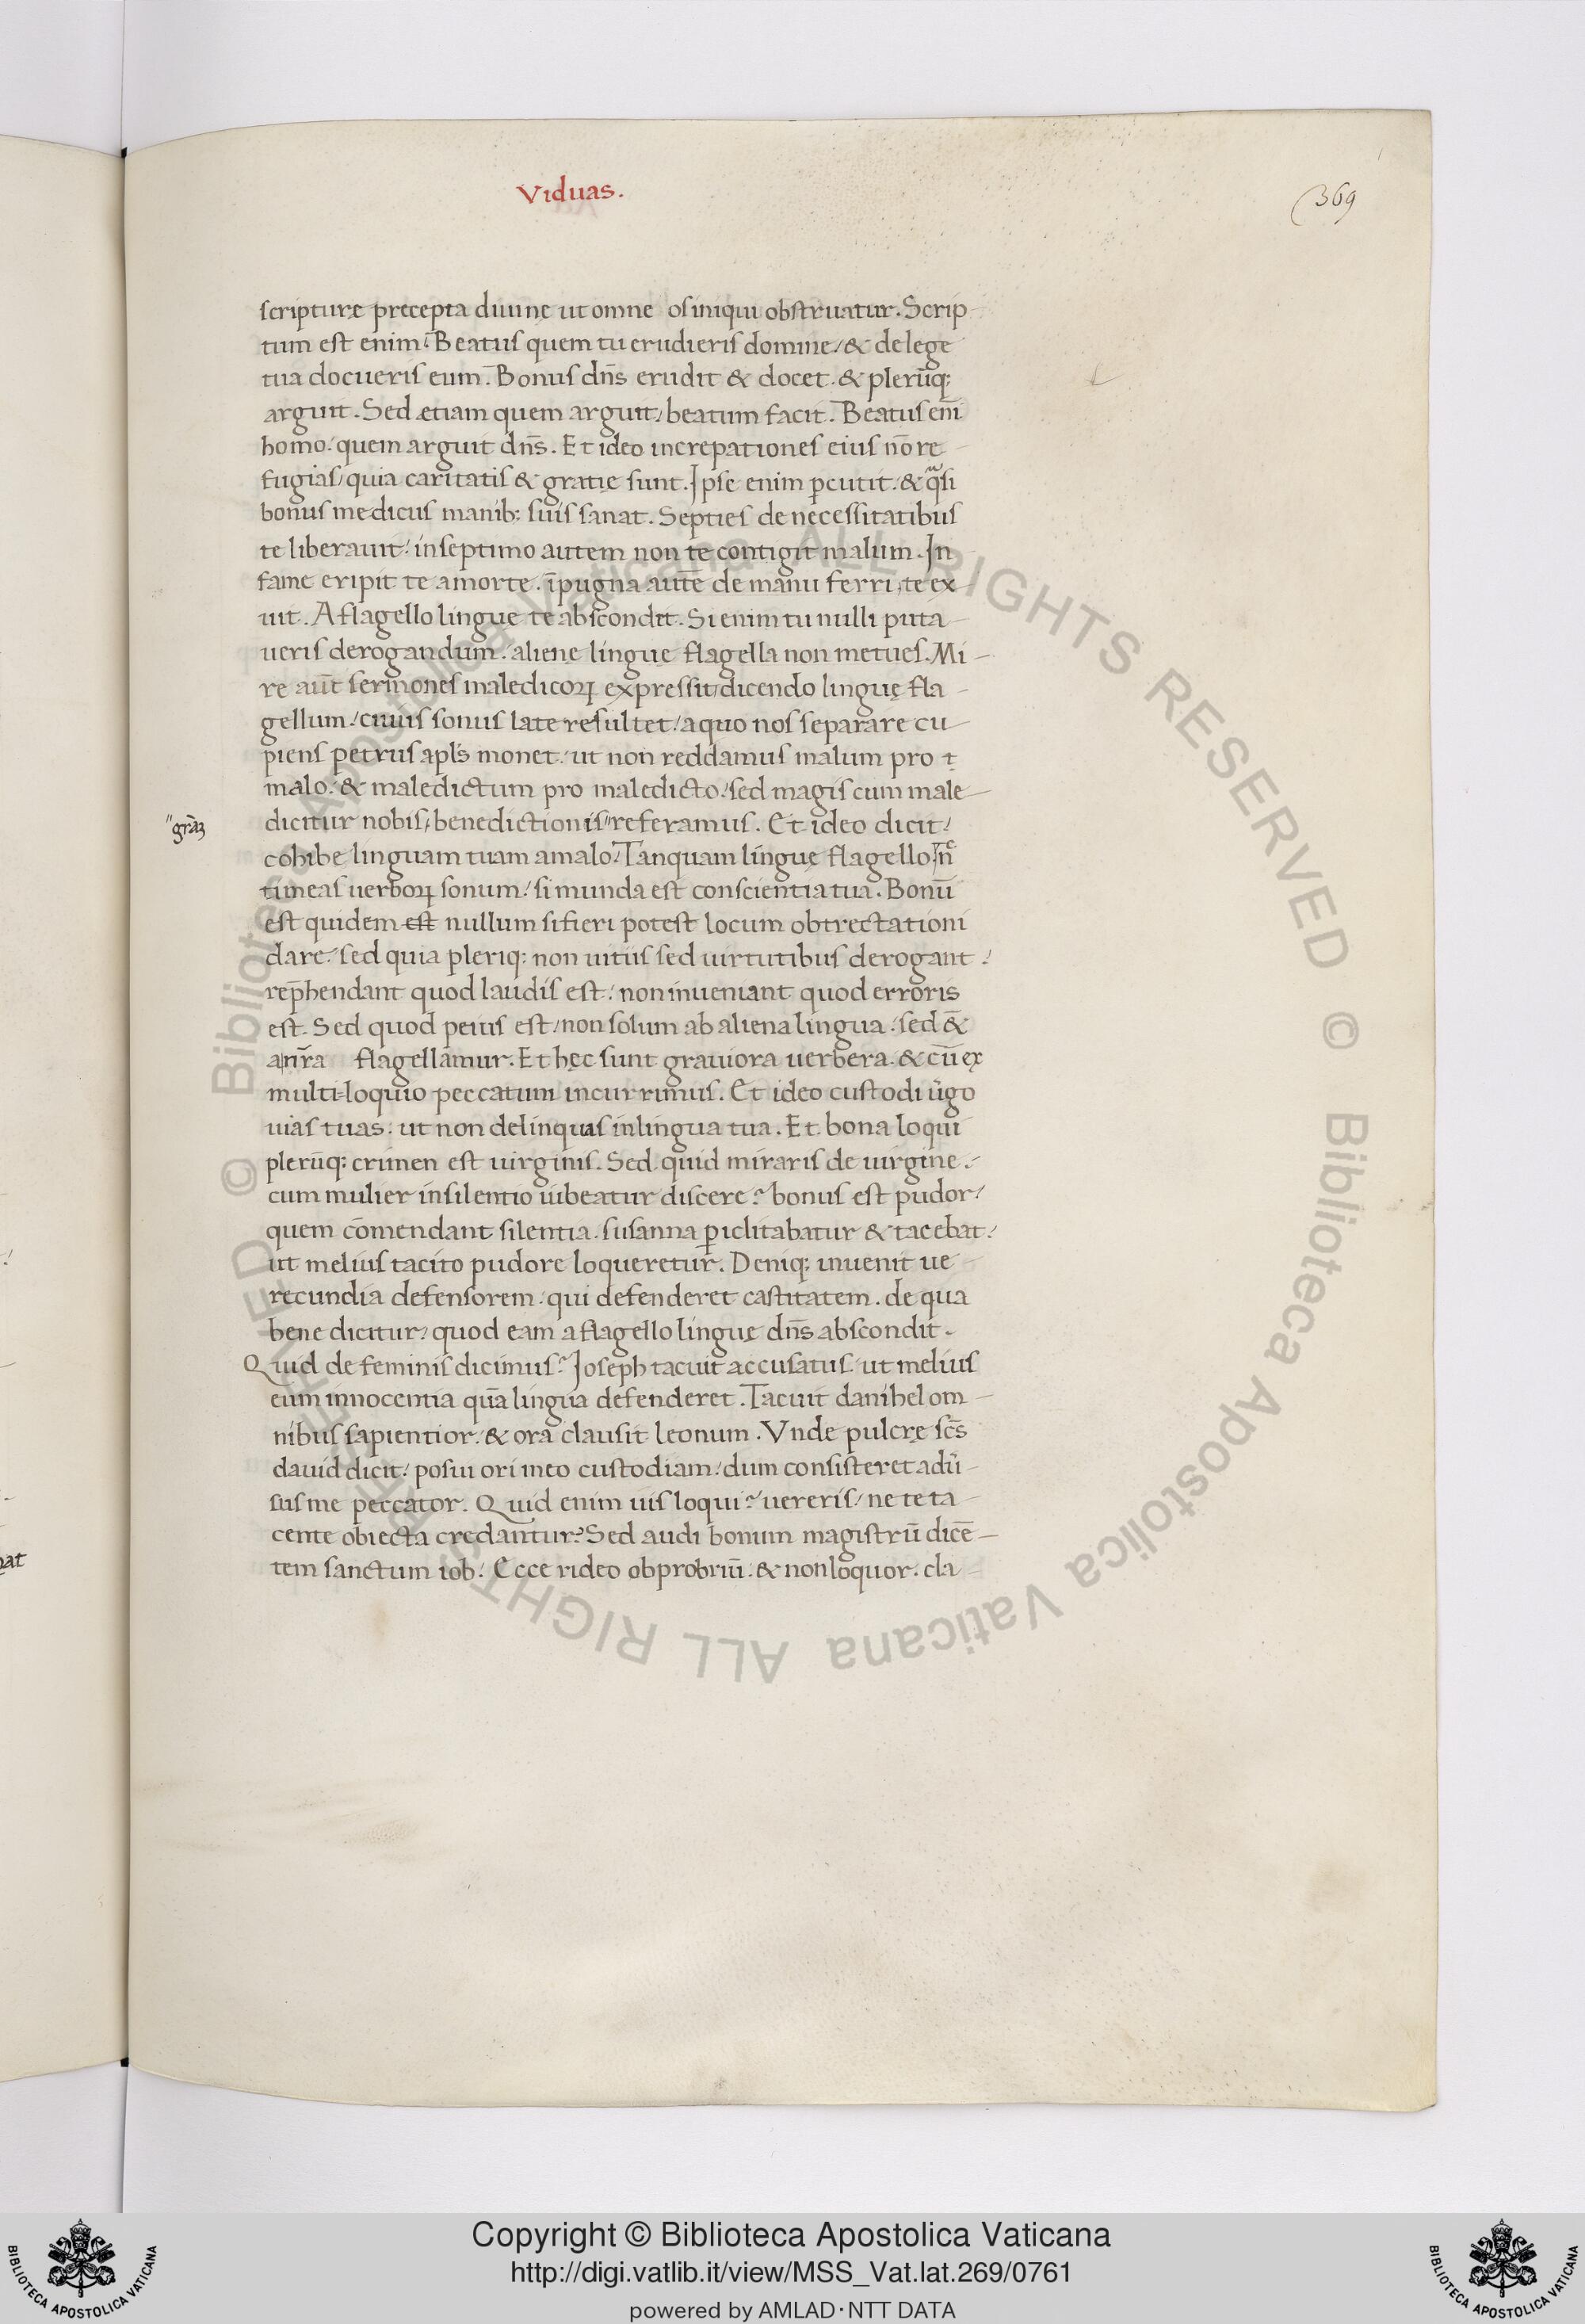 Viduas.
369
scripturę precepta diuinę ut omne os iniqui obstruatur. Scrip-
tum est enim: Beatus quem tu erudieris domine, & de lege
tua docueris eum. Bonus dn̄s erudit & docet. & plerūq;
arguit. Sed etiam quem arguit, beatum facit. Beatus eni̅
homo, quem arguit dn̄s. Et ideo increpationes eius nō re-
fugias, quia caritatis & gratię sunt. Ipse enim p̱cutit, & q̄si
bonus medicus manib; suis sanat. Septies de necessitatibus
te liberauit, in septimo autem non te contigit malum. In
fame eripit te a morte. ī pugna autē de manu ferri, te ex-
uit. A flagello linguę te abscondit. Si enim tu nulli puta-
ueris derogandum, alienę linguę flagella non metues. Mi-
re aūt sermones maledicoꝝ expressit, dicendo linguę fla-
gellum, cuius sonus late resultet, a quo nos separare cu-
piens petrus apl̄s monet, ut non reddamus malum pro
malo, & maledictum pro maledicto, sed magis cum male-
dicitur nobis, benedictionis" referamus. Et ideo dicit,
"grāꝫ
cohibe linguam tuam a malo. Tanquam linguę flagello, n̄
timeas uerboꝝ sonum, si munda est conscientia tua. Bonū
est quidem est nullum si fieri potest locum obtrectationi
dare, sed quia pleriq; non uitiis sed uirtutibus derogant,
rep̄hendant quod laudis est, non inueniant quod erroris
est. Sed quod peius est, non solum ab aliena lingua, sed &
a nr̄a flagellamur. Et hęc sunt grauiora uerbera. & cū ex
multi-loquio peccatum incurrimus. Et ideo custodi ūgo
uias tuas, ut non delinquas in lingua tua. Et bona loqui
plerūq; crimen est uirginis. Sed quid miraris de uirgine,
cum mulier in silentio iubeatur discere? bonus est pudor,
quem cōmendant silentia. susanna p̱iclitabatur & tacebat,
ut melius tacito pudore loqueretur. Deniq; inuenit ue-
recundia defensorem, qui defenderet castitatem. de qua
bene dicitur, quod eam a flagello linguę dn̄s abscondit.
Quid de feminis dicimus? Ioseph tacuit accusatus, ut melius
eum innocentia quā lingua defenderet. Tacuit danihel om-
nibus sapientior, & ora clausit leonum. Vnde pulcrę sc̄s
dauid dicit, posui ori meo custodiam, dum consisteret adū-
sus me peccator. Quid enim uis loqui? uereris, ne te ta-
cente obiecta credantur? Sed audi bonum magistrū dicē-
tem sanctum iob, Ecce rideo obprobriū, & non loquor. cla-
© Biblioteca Apostolica Vaticana ALL RIGHTS RESERVED © Biblioteca Apostolica Vaticana ALL RIGHTS RESERVED
Copyright © Biblioteca Apostolica Vaticana
http://digi.vatlib.it/view/MSS_Vat.lat.269/0761
powered by AMLAD·NTT DATA
BIBLIOTECA APOSTOLICA VATICANA
BIBLIOTECA APOSTOLICA VATICANA